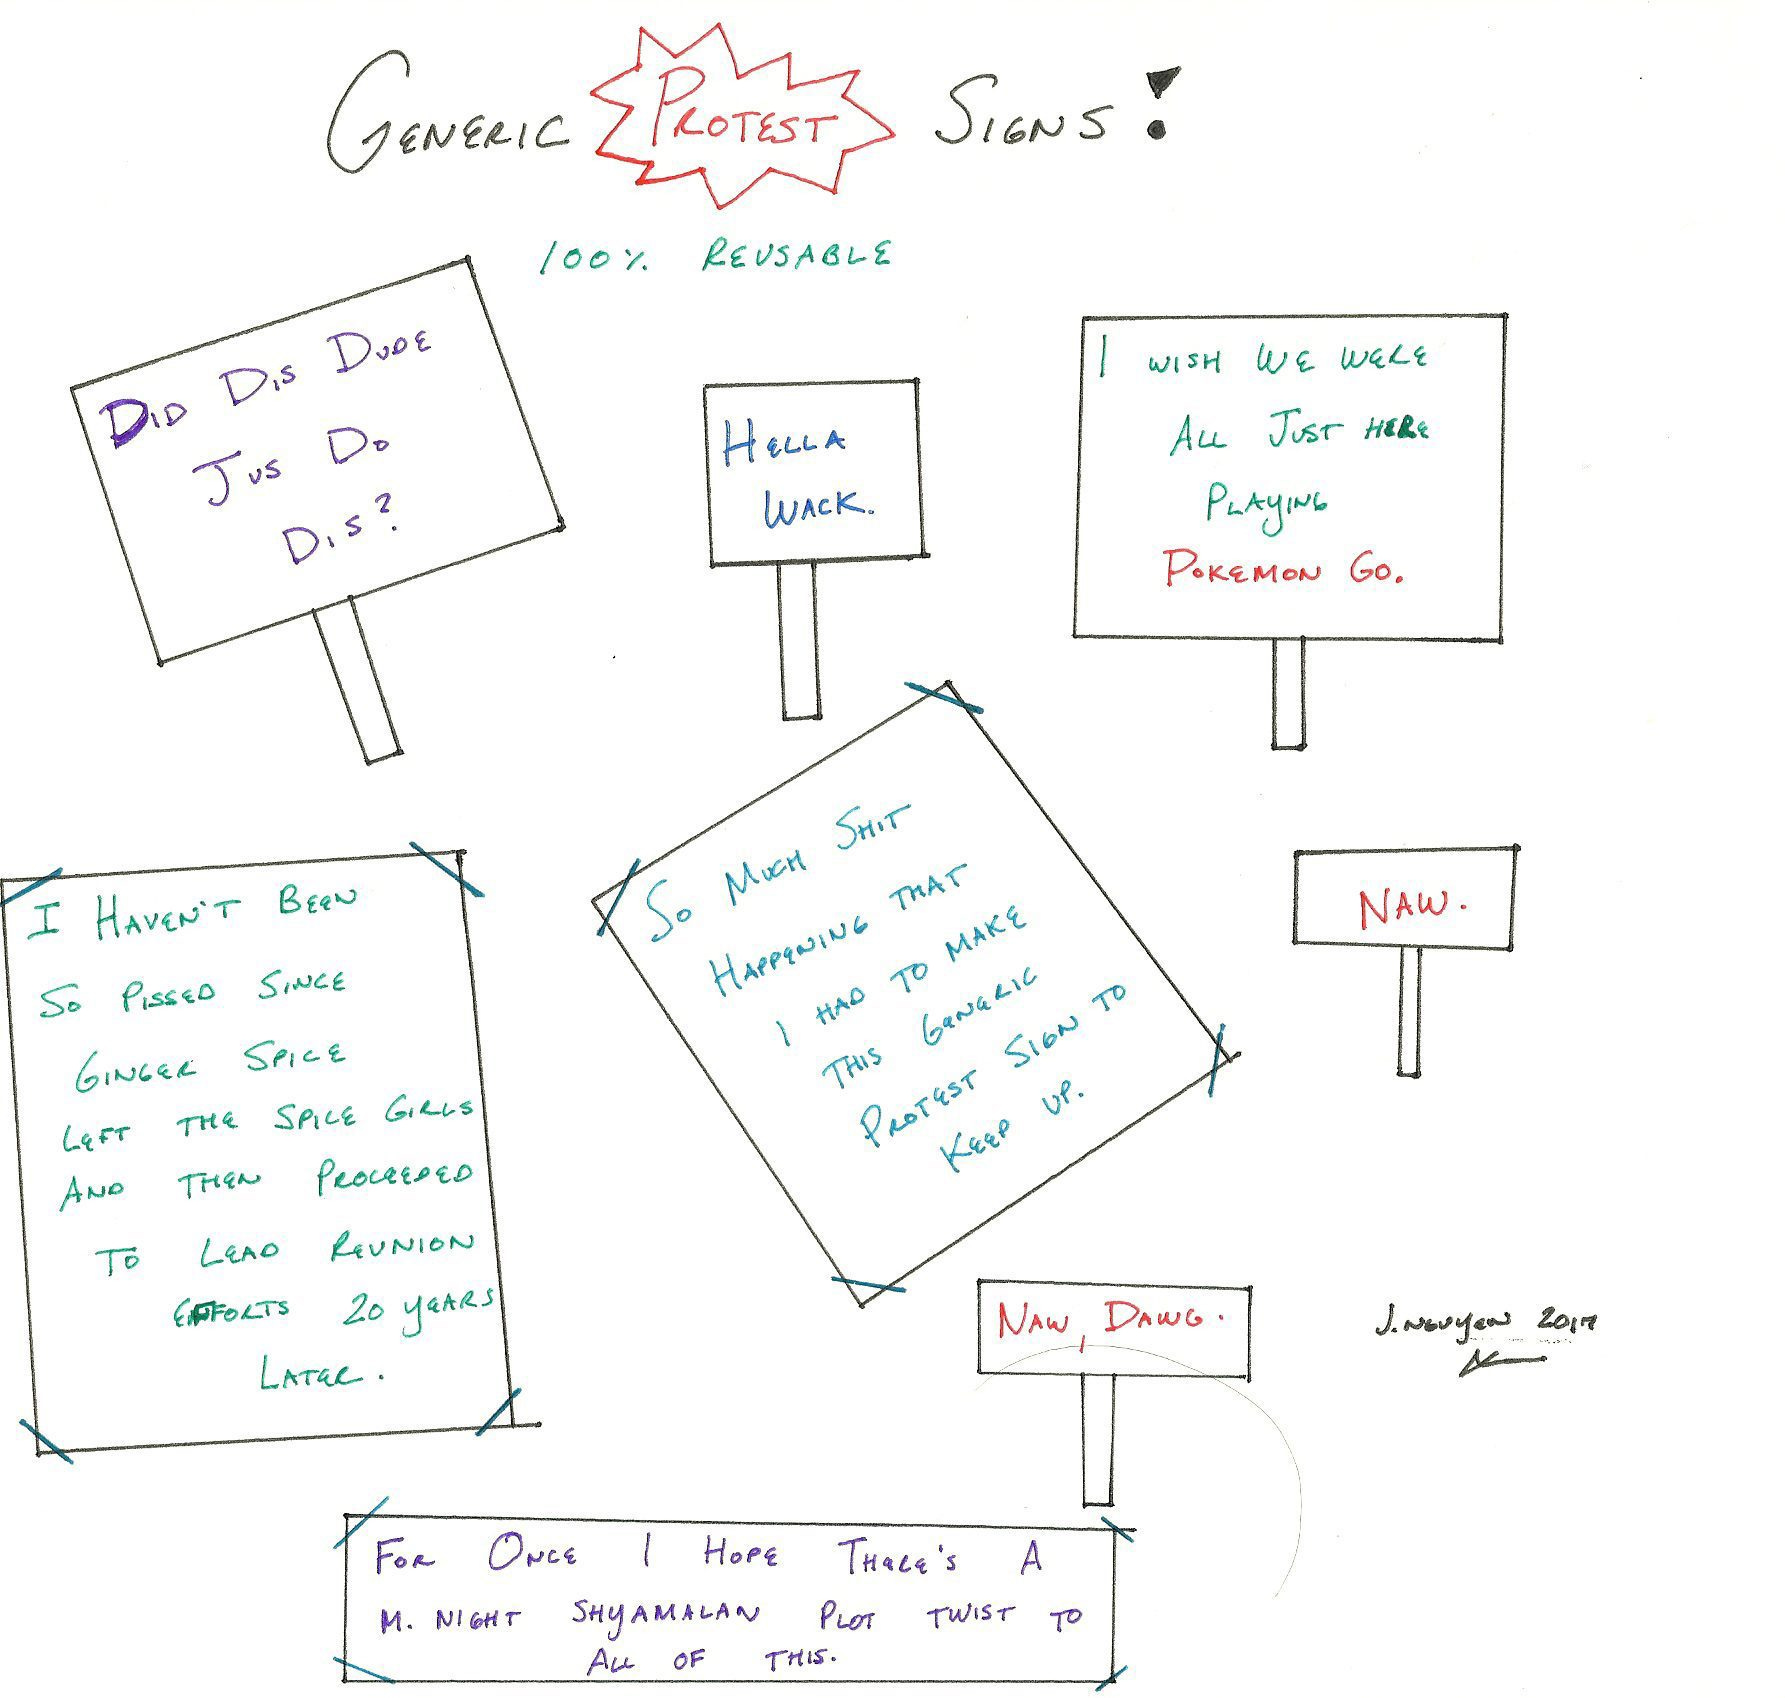 GENERIC PROTEST SIGNS!
100% REUSABLE
DID DIS DUDE
JUS DO
DIS?
HELLA
WACK.
I WISH WE WERE
ALL JUST HERE
PLAYING
POKEMON GO.
I HAVEN'T BEEN
SO PISSED SINCE
GINGER SPICE
LEFT THE SPICE GIRLS
AND THEN PROCEEDED
TO LEAD REUNION
EFFORTS 20 YEARS
LATER.
SO MUCH SHIT
HAPPENING THAT
I HAD TO MAKE
THIS GENERIC
PROTEST SIGN TO
KEEP UP.
NAW.
NAW, DAWG.
J. NGUYEN 2017
FOR ONCE I HOPE THERE'S A
M. NIGHT SHYAMALAN PLOT TWIST TO
ALL OF THIS.